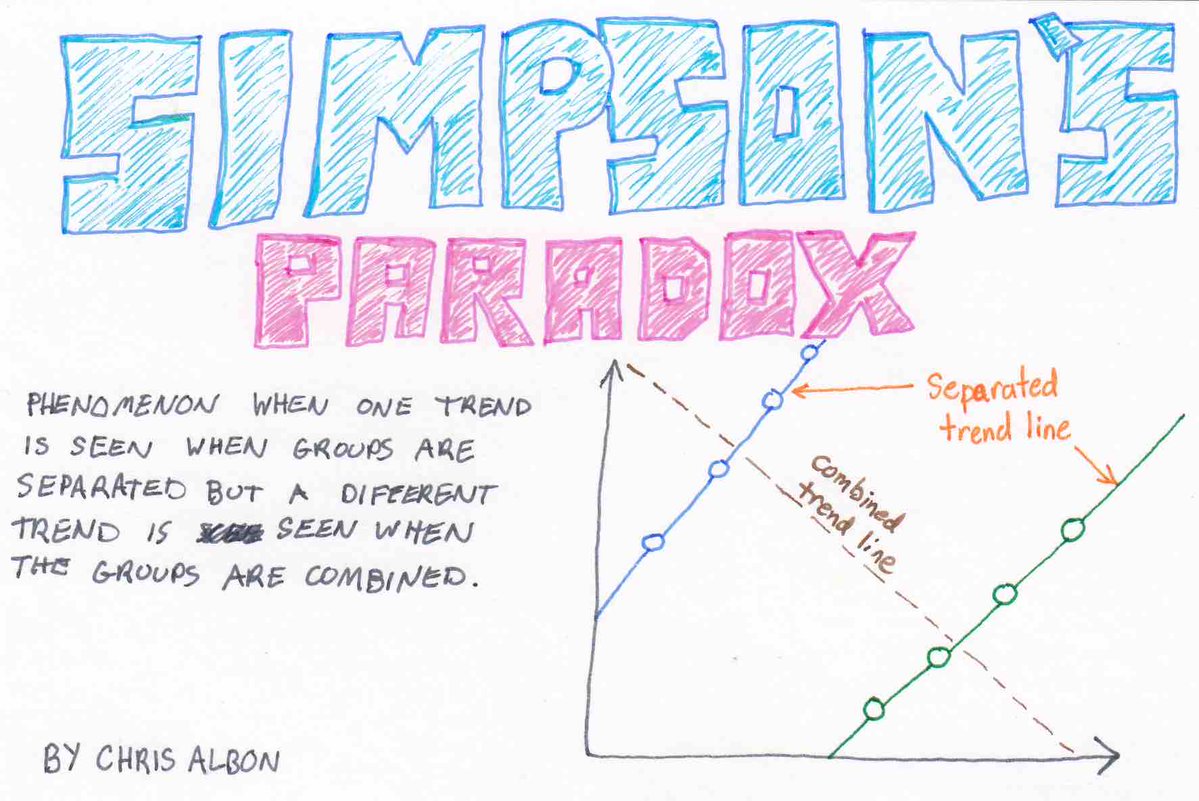 SIMPSON'S
PARADOX
PHENOMENON WHEN ONE TREND
IS SEEN WHEN GROUPS ARE
SEPARATED BUT A DIFFERENT
TREND IS SEEN WHEN
THE GROUPS ARE COMBINED.
Separated
trend line
combined
trend line
BY CHRIS ALBON